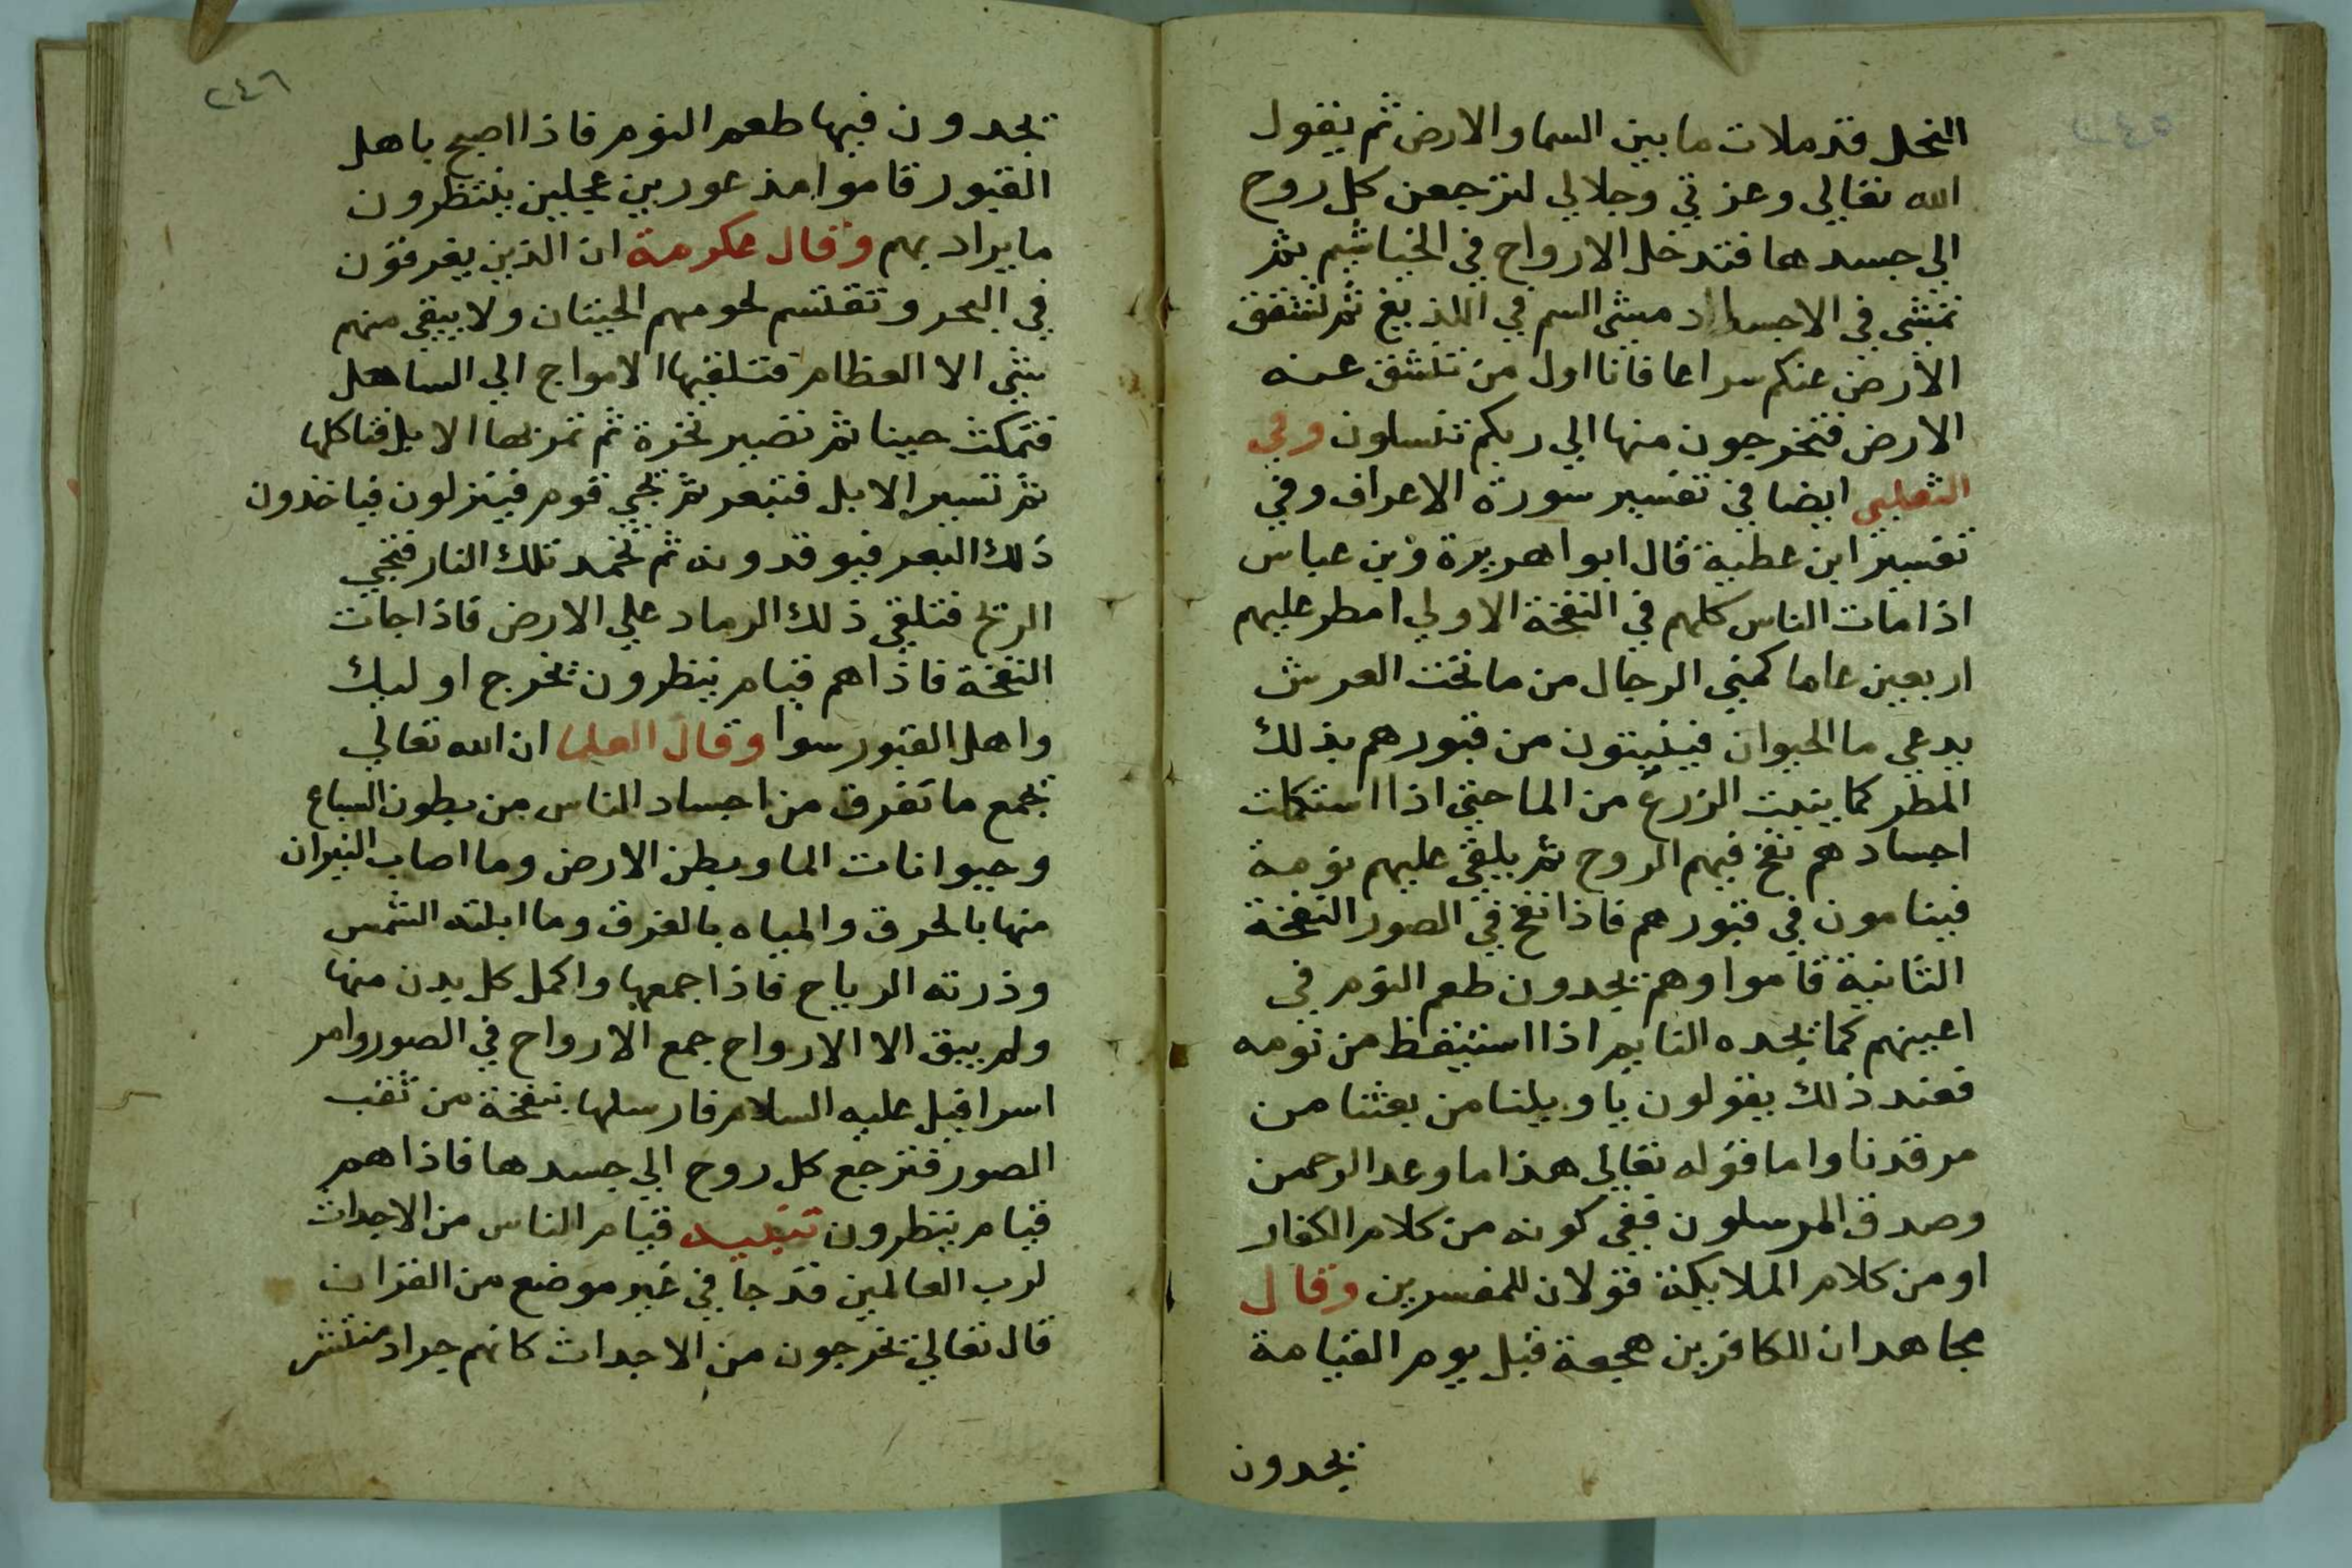 النحل قد ملات ما بين السما والارض ثم يقول
الله تعالي وعزتي وجلالي لترجعن كل روح
الي جسدها فتدخل الارواح في الخياشيم ثم
تمشي في الاجساد مشي السم في اللذيغ ثم تشقق
الارض عنكم سراعا فانا اول من تنشق عنه
الارض فتخرجون منها الي ربكم تنسلون وفي
الثعلبي ايضا في تفسير سورة الاعراف وفي
تفسير ابن عطية قال ابوا هريرة وبن عباس
اذا مات الناس كلهم في النفخة الاولي امطر عليهم
اربعين عاما كمني الرجال من ما تحت العرش
يدعي ما الحيوان فينبتون من قبورهم بذلك
المطر كما ينبت الزرع من الما حتي اذا استكملت
اجسادهم نفخ فيهم الروح ثم يلقي عليهم نومة
فينامون في قبورهم فاذا نفخ في الصور النفخة
الثانية قاموا وهم يجدون طعم النوم في
اعينهم كما يجده النايم اذا استيقظ من نومه
فعند ذلك يقولون ياويلنا من بعثنا من
مرقدنا واما قوله تعالي هذا ما وعد الرحمن
وصدق المرسلون ففي كونه من كلام الكفار
او من كلام الملايكة قولان للمفسرين وقال
مجاهد ان للكافرين هجعة قبل يوم القيامة
يجدون
٢٤٦
يجدون فيها طعم النوم فاذا اصبح باهل
القبور قاموا مذعورين عجلين ينتظرون
ما يراد بهم وقال عكرمة ان الذين يغرقون
في البحر وتقتسم لحومهم الحيتان ولا يبقي منهم
شي الا العظام فتلقيها الامواج الي الساهل
فتمكث حينا ثم تصير نخرة ثم تمر بها الابل فتاكلها
ثم تسير الابل فتبعر ثم تجي قوم فينزلون فياخذون
ذلك البعر فيوقدونه ثم تخمد تلك النار فتجي
الريح فتلقي ذلك الرماد علي الارض فاذا جات
النفخة فاذا هم قيام ينظرون يخرج اوليك
واهل القبور سوا وقال العلما ان الله تعالي
يجمع ما تفرق من اجساد الناس من بطون السباع
وحيوانات الما وبطن الارض وما اصاب النيران
منها بالحرق والمياه بالغرق وما ابلته الشمس
وذرته الرياح فاذا جمعها واكمل كل بدن منها
ولم يبق الا الارواح جمع الارواح في الصور وامر
اسرافيل عليه السلام فارسلها بنفخة من ثقب
الصور فترجع كل روح الي جسدها فاذا هم
قيام ينظرون تنبيه قيام الناس من الاجداث
لرب العالمين قد جا في غير موضع من القران
قال تعالي يخرجون من الاجداث كانهم جراد منتشر